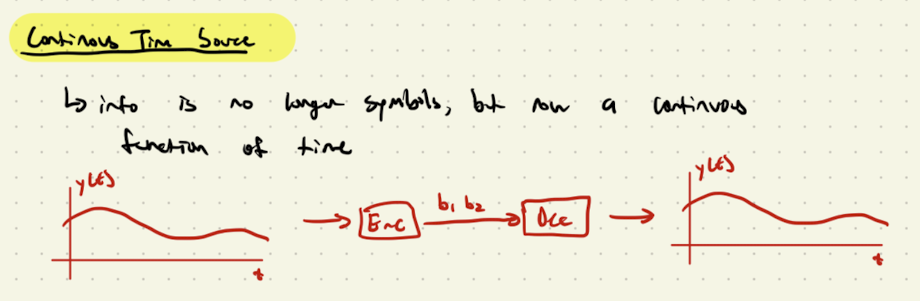 Continous Time Source
↳ info is no longer symbols, but now a continuous
function of time
y(t)
t
Enc
b₁ b₂
Dec
y(t)
t